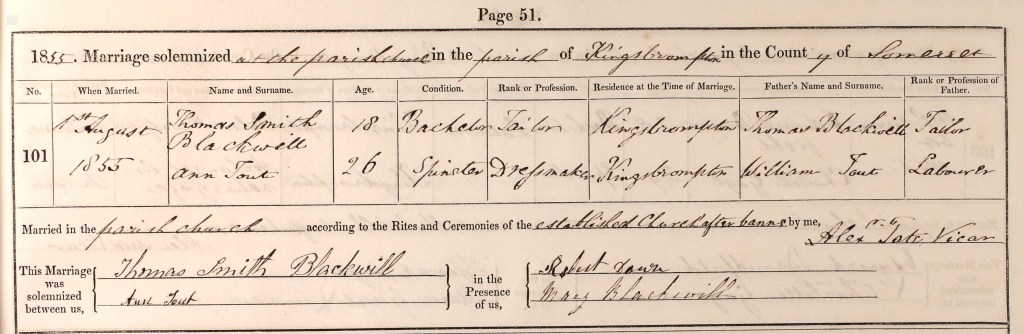 Page 51.
1855. Marriage solemnized at the parish church in the parish of Kingsbrompton in the County of Somerset
No. When Married. Name and Surname. Age. Condition. Rank or Profession. Residence at the Time of Marriage. Father's Name and Surname. Rank or Profession of Father.
101 1st August 1855 Thomas Smith Blackwill 18 Bachelor Tailor Kingsbrompton Thomas Blackwill Tailor
Ann Tout 26 Spinster Dressmaker Kingsbrompton William Tout Labourer
Married in the parish church according to the Rites and Ceremonies of the established Church after banns by me,
Alexr Tate Vicar
This Marriage was solemnized between us, Thomas Smith Blackwill
Ann Tout
in the Presence of us, Robert
Mary Blackwill